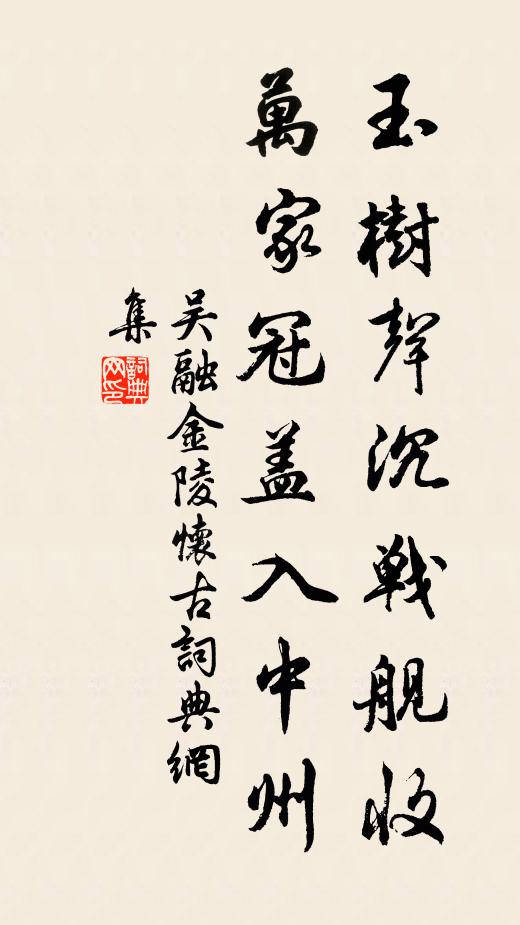 玉樹聲沉戰舰收
萬家冠盖入中州
吴融金陵懷古詞典網
集
詞典網印